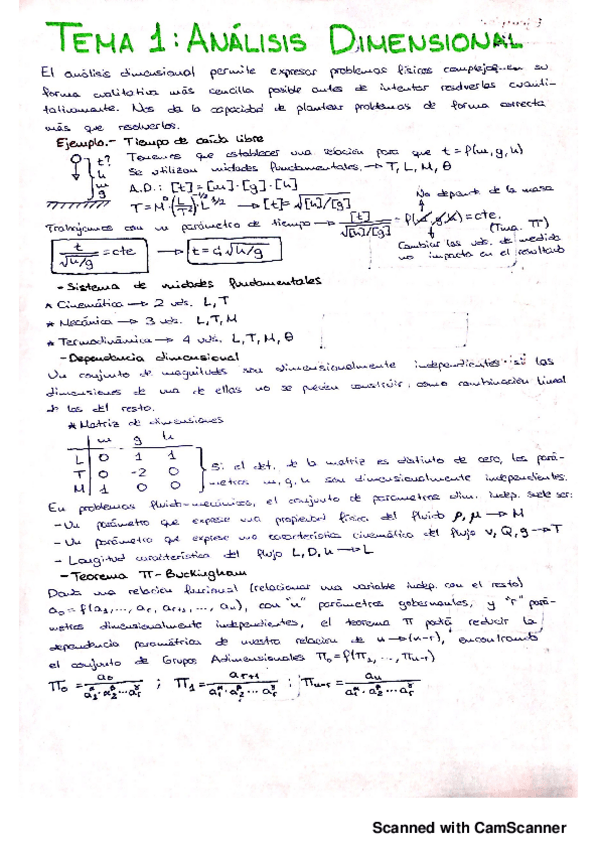 TEMA 1: ANÁLISIS DIMENSIONAL
El análisis dimensional permite expresar problemas físicos complejos en su
forma cualitativa más sencilla posible antes de intentar resolverlas cuanti-
tativamente. Nos da la capacidad de plantear problemas de forma correcta
más que resolverlos.
Ejemplo.- Tiempo de caída libre
t? h m g
Tenemos que establecer una relación para que t = f(m, g, h)
Se utilizan unidades fundamentales. → T, L, M, θ
A.D.: [t] = [m]·[g]·[h]
No depende de la masa
T = M⁰ (L/T²)^-1/2 · L^1/2 → [t] = √[h]/[g]
Trabajamos con un parámetro de tiempo → [t]/√[h]/[g] = f(m, g, h) = cte.
(Tma. π)
t/√h/g = cte → t = c₁√h/g
Cambiar las uds. de medida
no impacta en el resultado
- Sistema de unidades fundamentales
* Cinemática → 2 uds. L, T
* Mecánica → 3 uds. L, T, M
* Termodinámica → 4 uds. L, T, M, θ
- Dependencia dimensional
Un conjunto de magnitudes son dimensionalmente independientes si las
dimensiones de una de ellas no se pueden construir como combinación lineal
de las del resto.
* Matriz de dimensiones
m g h
L 0 1 1
T 0 -2 0
M 1 0 0
Si el det. de la matriz es distinto de cero, los pará-
metros m, g, h son dimensionalmente independientes.
En problemas fluido-mecánicos, el conjunto de parámetros dim. indep. suele ser:
- Un parámetro que exprese una propiedad física del fluido ρ, μ → M
- Un parámetro que exprese una característica cinemática del flujo v, Q, g → T
- Longitud característica del flujo L, D, h → L
- Teorema π-Buckingham
Dada una relación funcional (relacionar una variable indep. con el resto)
a₀ = f(a₁, ..., ar, ar+1, ..., an), con "n" parámetros gobernantes, y "r" pará-
metros dimensionalmente independientes, el teorema π podrá reducir la
dependencia paramétrica de nuestra relación de n → (n-r), encontrando
el conjunto de Grupos Adimensionales π₀ = f(π₁, ..., πn-r)
π₀ = a₀/a₁^α·a₂^β...ar^δ ; π₁ = ar+1/a₁^α·a₂^β...ar^δ ; πn-r = an/a₁^α·a₂^β...ar^δ
Scanned with CamScanner